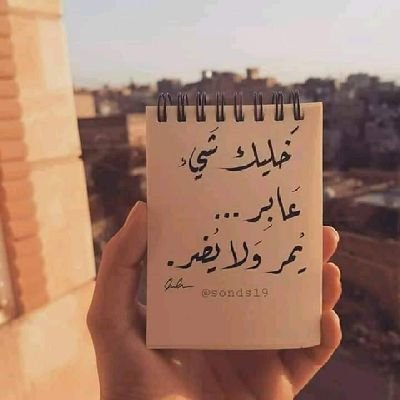 خَليك شَيء
عَابِر...
يْمر وَلا يُضر.
@sonds19